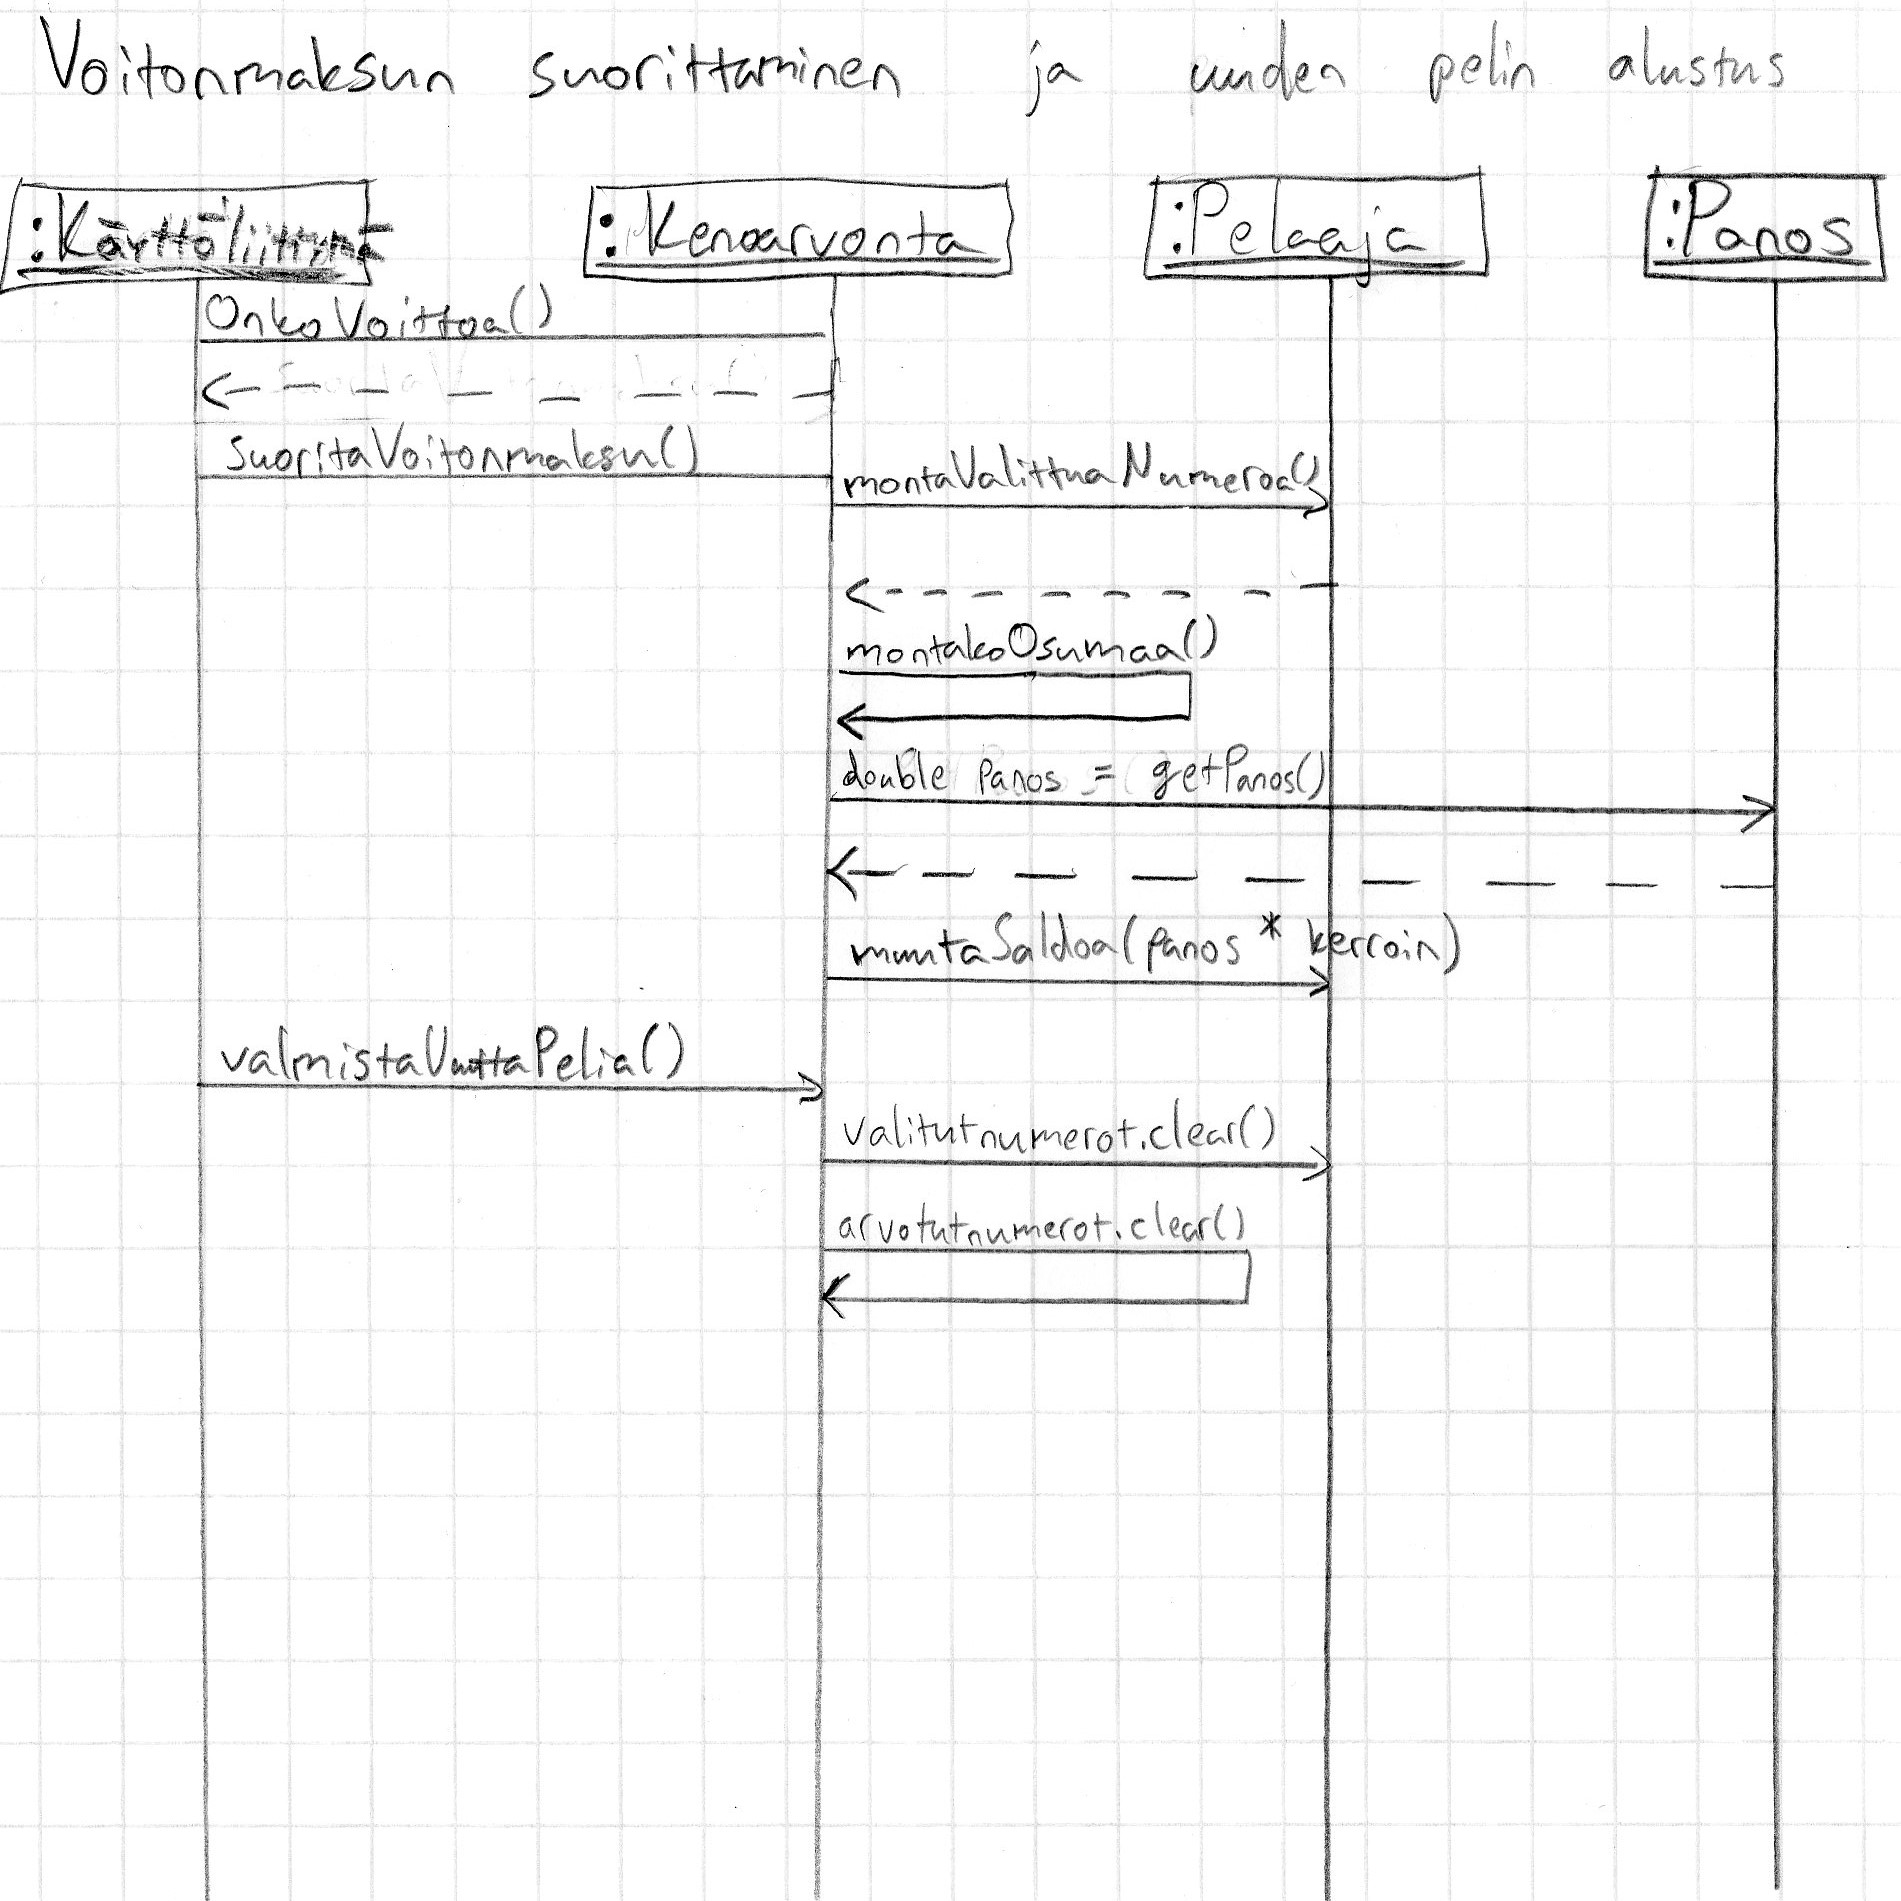 Voitonmaksun suorittaminen ja uuden pelin alustus
:Käyttöliittymä :Kenoarvonta :Pelaaja :Panos
OnkoVoittoa()
suoritaVoitonmaksu()
montaValittuaNumeroa()
montakoOsumaa()
double panos = getPanos()
muutaSaldoa(panos * kerroin)
valmistaUuttaPelia()
valitutnumerot.clear()
arvotutnumerot.clear()